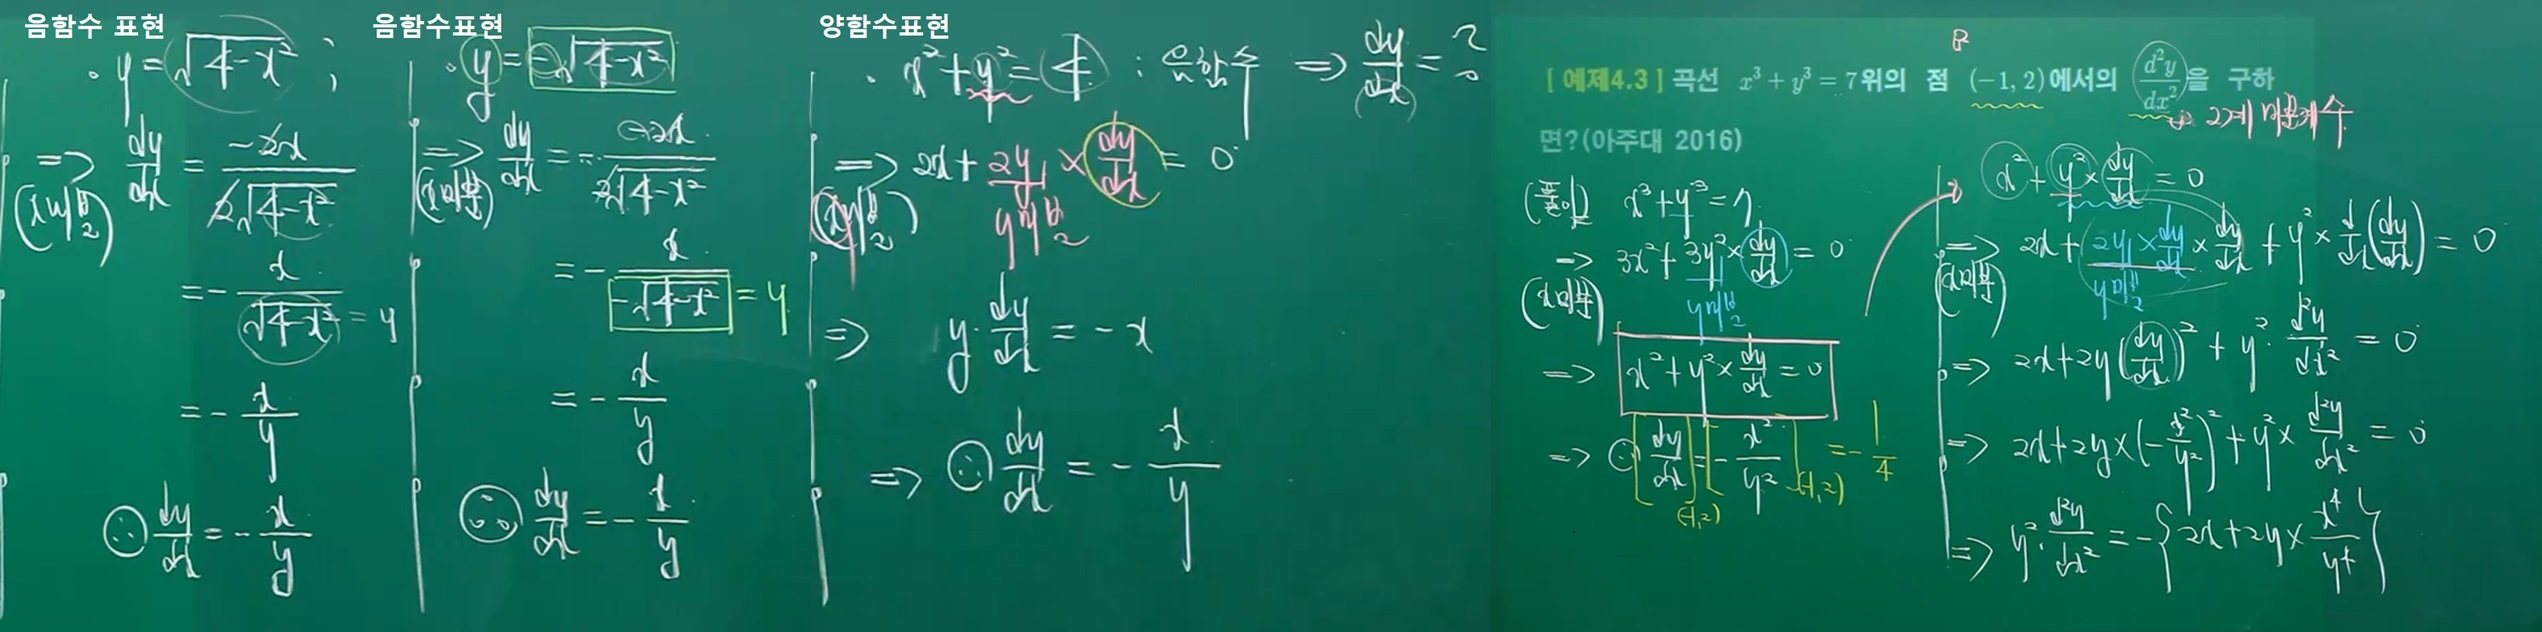 음함수 표현
· y = √(4-x²) ;
=> dy/dx = -2x / 2√(4-x²)
(x미분)
= - x / √(4-x²) = y
= - x/y
∴ dy/dx = - x/y
음함수표현
· y = -√(4-x²)
=> dy/dx = - -2x / 2√(4-x²)
(x미분)
= - x / -√(4-x²) = y
= - x/y
∴ dy/dx = - x/y
양함수표현
· x² + y² = 4 : 음함수 => dy/dx = ?
=> 2x + 2y × dy/dx = 0
(x미분) y미분
=> y · dy/dx = -x
=> ∴ dy/dx = - x/y
[ 예제4.3 ] 곡선 x³ + y³ = 7위의 점 (-1, 2)에서의 d²y/dx²을 구하
면?(아주대 2016)
=> 2계 미분계수
(풀이) x³ + y³ = 7
=> 3x² + 3y² × dy/dx = 0
(x미분) y미분
=> x² + y² × dy/dx = 0
=> ∴ [dy/dx](-1,2) = [- x²/y²](-1,2) = - 1/4
x² + y² × dy/dx = 0
=> 2x + 2y × dy/dx × dy/dx + y² × d/dx (dy/dx) = 0
(x미분) y미분
=> 2x + 2y (dy/dx)² + y² · d²y/dx² = 0
=> 2x + 2y × (- x²/y²)² + y² × d²y/dx² = 0
=> y² · d²y/dx² = - { 2x + 2y × x⁴/y⁴ }